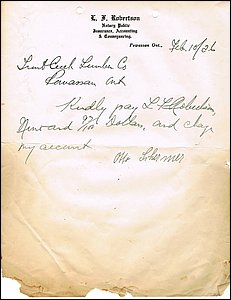 L. F. Robertson
Notary Public
Insurance, Accounting
& Conveyancing.
Powassan Ont., Feb 10/26
Trout Creek Lumber Co
Powassan Ont
Kindly pay L F Robertson
Nine and /100 Dollars, and charge
my account
Otto Schermer